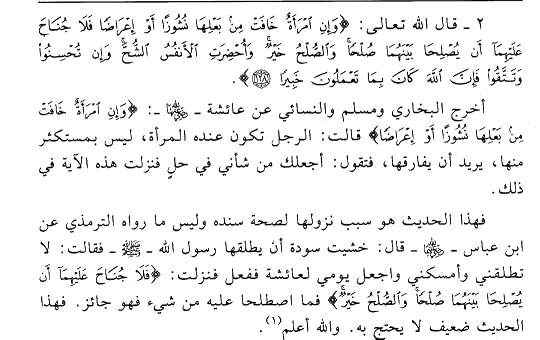 ٢ ـ قال الله تعالى: ﴿وَإِنِ ٱمْرَأَةٌ خَافَتْ مِنۢ بَعْلِهَا نُشُوزًا أَوْ إِعْرَاضًا فَلَا جُنَاحَ
عَلَيْهِمَآ أَن يُصْلِحَا بَيْنَهُمَا صُلْحًا وَٱلصُّلْحُ خَيْرٌ وَأُحْضِرَتِ ٱلْأَنفُسُ ٱلشُّحَّ وَإِن تُحْسِنُوا۟
وَتَتَّقُوا۟ فَإِنَّ ٱللَّهَ كَانَ بِمَا تَعْمَلُونَ خَبِيرًا ﴿١٢٨﴾﴾.
أخرج البخاري ومسلم والنسائي عن عائشة ـ رضي الله عنها ـ: ﴿وَإِنِ ٱمْرَأَةٌ خَافَتْ
مِنۢ بَعْلِهَا نُشُوزًا أَوْ إِعْرَاضًا﴾ قالت: الرجل تكون عنده المرأة، ليس بمستكثر
منها، يريد أن يفارقها، فتقول: أجعلك من شأني في حلٍ فنزلت هذه الآية في
ذلك.
فهذا الحديث هو سبب نزولها لصحة سنده وليس ما رواه الترمذي عن
ابن عباس ـ رضي الله عنهما ـ قال: خشيت سودة أن يطلقها رسول الله ـ ﷺ ـ فقالت: لا
تطلقني وأمسكني واجعل يومي لعائشة ففعل فنزلت: ﴿فَلَا جُنَاحَ عَلَيْهِمَآ أَن
يُصْلِحَا بَيْنَهُمَا صُلْحًا وَٱلصُّلْحُ خَيْرٌ﴾ فما اصطلحا عليه من شيء فهو جائز. فهذا
الحديث ضعيف لا يحتج به. والله أعلم(١).